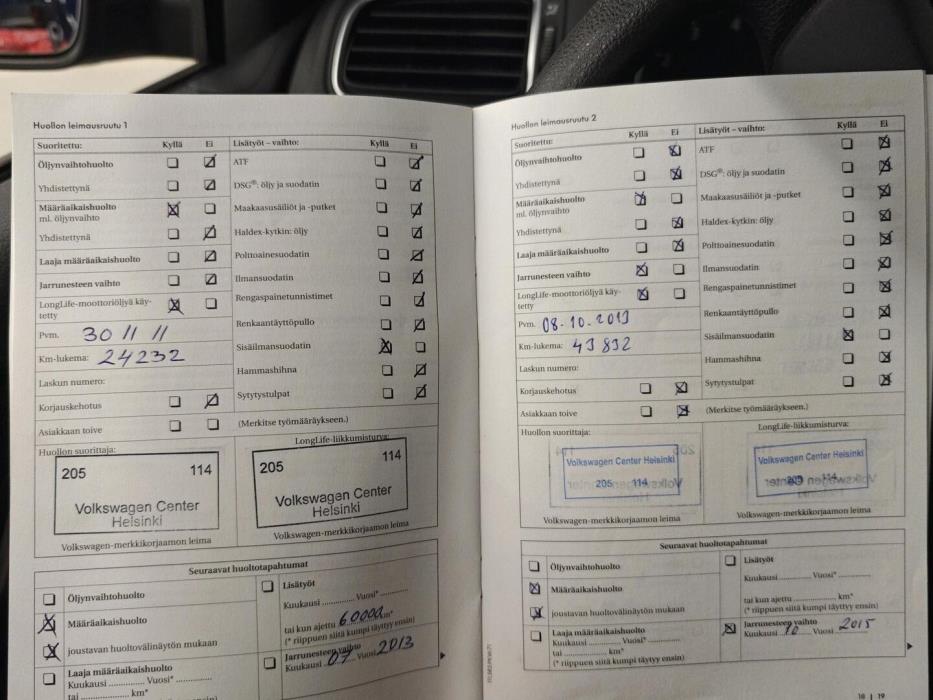 Huollon leimausruutu 1
Suoritettu: Kyllä Ei
Öljynvaihtohuolto
Yhdistettynä
Määräaikaishuolto
ml. öljynvaihto
Yhdistettynä
Laaja määräaikaishuolto
Jarrunesteen vaihto
LongLife-moottoriöljyä käy-
tetty
Pvm. 30 11 11
Km-lukema: 24232
Laskun numero:
Korjauskehotus
Asiakkaan toive
Lisätyöt – vaihto: Kyllä Ei
ATF
DSG®: öljy ja suodatin
Maakaasusäiliöt ja -putket
Haldex-kytkin: öljy
Polttoainesuodatin
Ilmansuodatin
Rengaspainetunnistimet
Renkaantäyttöpullo
Sisäilmansuodatin
Hammashihna
Sytytystulpat
(Merkitse työmääräykseen.)
Huollon suorittaja:
205 114
Volkswagen Center
Helsinki
Volkswagen-merkkikorjaamon leima
LongLife-liikkumisturva:
205 114
Volkswagen Center
Helsinki
Volkswagen-merkkikorjaamon leima
Seuraavat huoltotapahtumat
Öljynvaihtohuolto
Määräaikaishuolto
joustavan huoltovälinäytön mukaan
Laaja määräaikaishuolto
Kuukausi .............. Vuosi* ..............
tai .............. km*
Lisätyöt
Kuukausi .............. Vuosi* ..............
tai kun ajettu 60000 km*
(* riippuen siitä kumpi täyttyy ensin)
Jarrunesteen vaihto
Kuukausi 07 Vuosi 2013
Huollon leimausruutu 2
Suoritettu: Kyllä Ei
Öljynvaihtohuolto
Yhdistettynä
Määräaikaishuolto
ml. öljynvaihto
Yhdistettynä
Laaja määräaikaishuolto
Jarrunesteen vaihto
LongLife-moottoriöljyä käy-
tetty
Pvm. 08.10.2013
Km-lukema: 43832
Laskun numero:
Korjauskehotus
Asiakkaan toive
Lisätyöt – vaihto: Kyllä Ei
ATF
DSG®: öljy ja suodatin
Maakaasusäiliöt ja -putket
Haldex-kytkin: öljy
Polttoainesuodatin
Ilmansuodatin
Rengaspainetunnistimet
Renkaantäyttöpullo
Sisäilmansuodatin
Hammashihna
Sytytystulpat
(Merkitse työmääräykseen.)
Huollon suorittaja:
Volkswagen Center Helsinki
205 114
Volkswagen-merkkikorjaamon leima
LongLife-liikkumisturva:
Volkswagen Center Helsinki
205 114
Volkswagen-merkkikorjaamon leima
Seuraavat huoltotapahtumat
Öljynvaihtohuolto
Määräaikaishuolto
joustavan huoltovälinäytön mukaan
Laaja määräaikaishuolto
Kuukausi .............. Vuosi* ..............
tai .............. km*
(* riippuen siitä kumpi täyttyy ensin)
Lisätyöt
Kuukausi .............. Vuosi* ..............
tai kun ajettu .............. km*
(* riippuen siitä kumpi täyttyy ensin)
Jarrunesteen vaihto
Kuukausi 10 Vuosi 2015
18 | 19